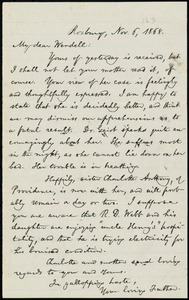 Roxbury, Nov. 5, 1868.
My dear Wendell:
Yours of yesterday is received, but
I shall not let your mother read it, of
course. Your view of her case is feelingly
and thoughtfully expressed. I am happy to
state that she is decidedly better, and think we
may dismiss our apprehensions as to
a fatal result. Dr. Geist speaks quite en-
couragingly about her. She suffers most
in the night, as she cannot lie down on her
bed. Her trouble is in breathing.
Happily, sister Charlotte Anthony, of
Providence, is now with her, and will prob-
ably remain a day or two. I suppose
you are aware that R. D. Webb and his
daughter are enjoying uncle Henry's hospi-
tality, and that he is trying electricity for
his bruised condition.
Charlotte and mother send loving
regards to you and yours.
In galloping haste,
Your loving Father.